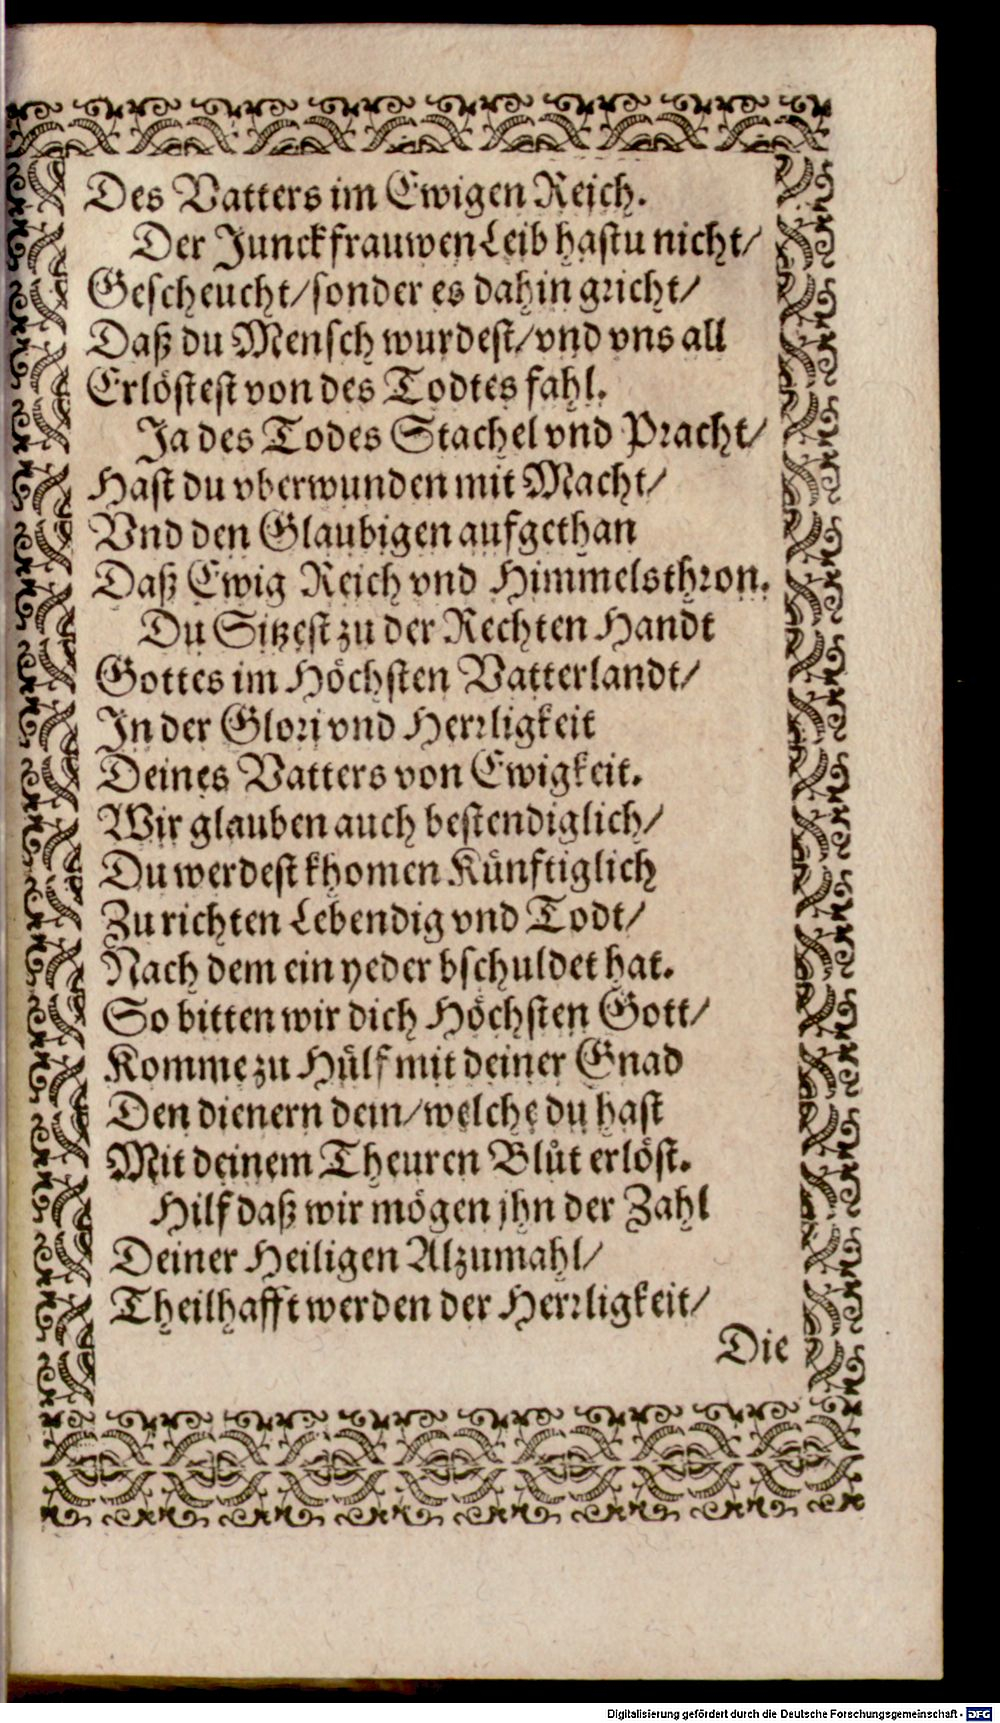 Des Vatters im Ewigen Reich.
Der Junckfrauwen Leib hastu nicht/
Gescheucht/ sonder es dahin gricht/
Daß du Mensch wurdest/ vnd vns all
Erlöstest von des Todtes fahl.
Ja des Todes Stachel vnd Pracht/
Hast du vberwunden mit Macht/
Vnd den Glaubigen aufgethan
Daß Ewig Reich vnd Himmelsthron.
Du Sitzest zu der Rechten Handt
Gottes im Höchsten Vatterlandt/
In der Glori vnd Herrligkeit
Deines Vatters von Ewigkeit.
Wir glauben auch bestendiglich/
Du werdest khomen Künftiglich
Zu richten Lebendig vnd Todt/
Nach dem ein yeder bschuldet hat.
So bitten wir dich Höchsten Gott/
Komme zu Hülf mit deiner Gnad
Den dienern dein/ welche du hast
Mit deinem Theuren Blůt erlöst.
Hilf daß wir mögen jhn der Zahl
Deiner Heiligen Alzumahl/
Theilhafft werden der Herrligkeit/
Die
Digitalisierung gefördert durch die Deutsche Forschungsgemeinschaft - DFG